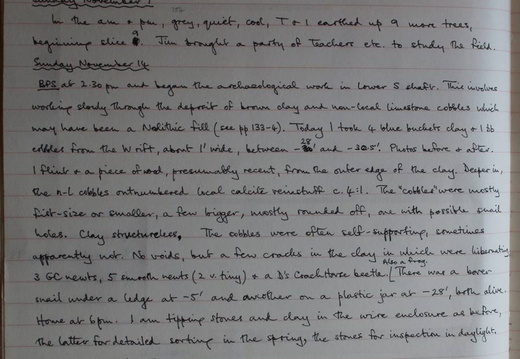 Sunday November 7
In the am & pm, grey, quiet, cool, T & I earthed up 9 more trees,
beginning slice 9. Jim brought a party of Teachers etc. to study the field.
Sunday November 14
BPS at 2.30 pm and began the archaeological work in Lower S shaft. This involves
working slowly through the deposit of brown clay and non-local limestone cobbles which
may have been a Neolithic fill (see pp 133-4). Today I took 4 blue buckets clay & 1 bb
cobbles from the W rift, about 1' wide, between -28' and -30.5'. Photos before & after.
1 flint & a piece of wood, presumably recent, from the outer edge of the clay. Deeper in,
the n-l cobbles outnumbered local calcite rein stuff c. 4:1. The "cobbles" were mostly
fist-size or smaller, a few bigger, mostly rounded off, one with possible snail
holes. Clay structureless. The cobbles were often self-supporting, sometimes
apparently not. No voids, but a few cracks in the clay in which were hibernating
3 GC newts, 5 smooth newts (2 v. tiny) & a D's Coachhorse beetle. Also a frog. There was a
snail under a ledge at -5' and another on a plastic jar at -28', both alive.
Home at 6pm. I am tipping stones and clay in the wire enclosure as before,
the latter for detailed sorting in the spring, the stones for inspection in daylight.